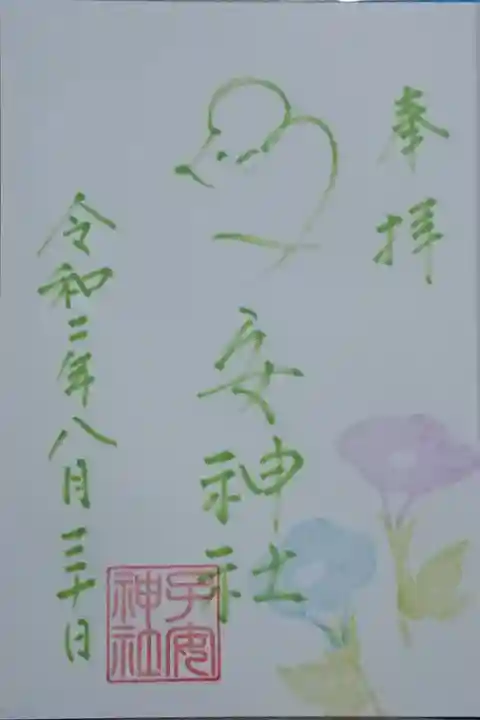 奉拝
安神社
令和二年八月三十日
子安
神社